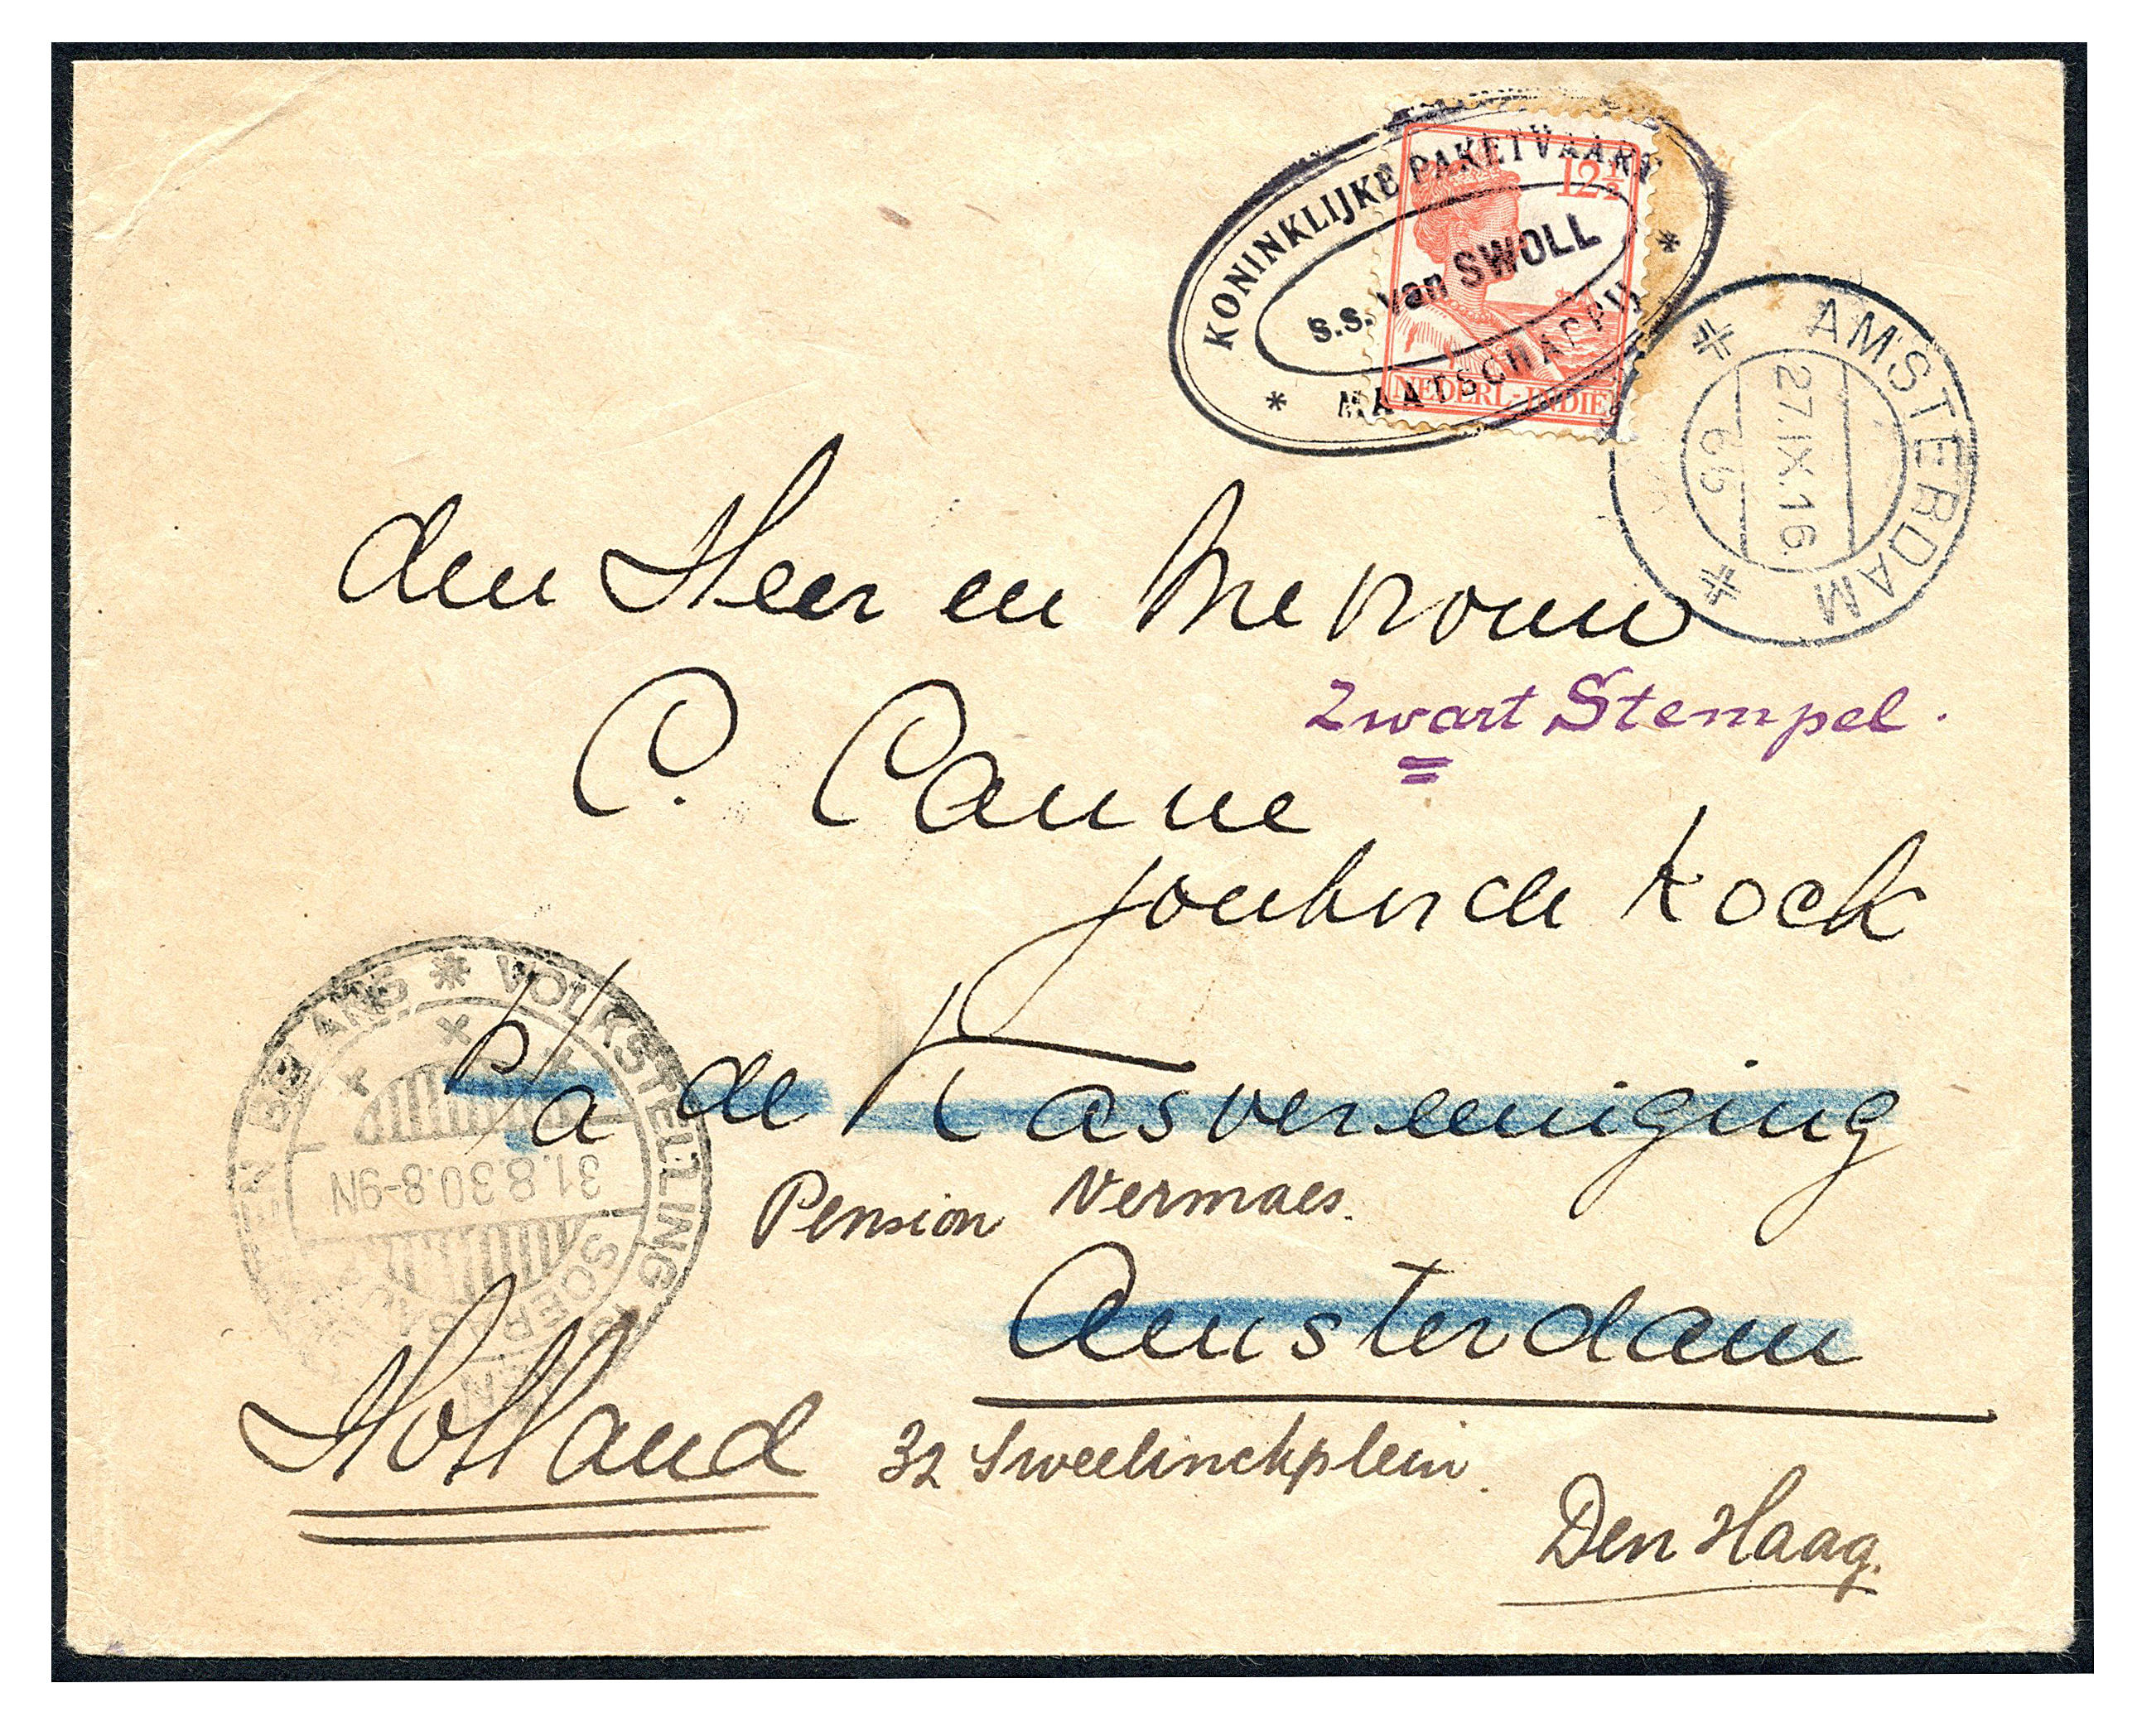 KONINKLIJKE PAKETVAART
s.s. van SWOLL
* MAATSCHAPPIJ *
12½
NEDERL-INDIE
AMSTERDAM
27.IX.16
den Heer en Mevrouw
Zwart Stempel.
C. Canne
Kock
VOLKSTELLING
BELANG
p/a de Kasvereeniging
31.8.30.8-9N
SOERABAJA
Pension Vermaes.
Amsterdam
Holland
32 Sweelinckplein.
Den Haag.